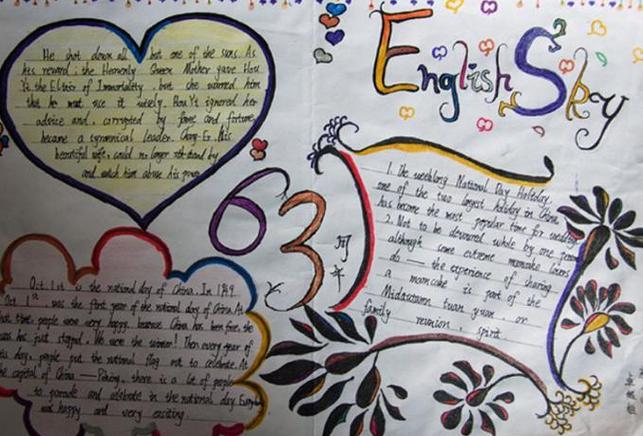 English Sky
He shot down all but one of the suns. As
his reward, the Heavenly Queen Mother gave Hou
Yi the Elixir of Immortality, but she warned him
that he must use it wisely. Hou Yi ignored her
advice and, corrupted by fame and fortune,
became a tyrannical leader. Chang-Er, his
beautiful wife, could no longer stand by
and watch him abuse his power
63
1. The weeklong National Day Holiday,
one of the two largest holiday in China,
has become the most popular time for wedding
2. Not to be devoured whole by one person
although some extreme mooncake lovers
do — the experience of sharing
a mooncake is part of the
Midautumn tuan yuan, or
family reunion, spirit.
Oct. 1st is the national day of China. In 1949.
Oct 1st, was the first year of the national day of China. At
that time, people were very happy, because China has been free, the
was just stoped. We were the winner! Then every year of
this day, people put the national flag out to celebrate. At
the capital of China — Peking, there is a lot of people
to parade and celebrate in the national day.
and happy and very exciting.